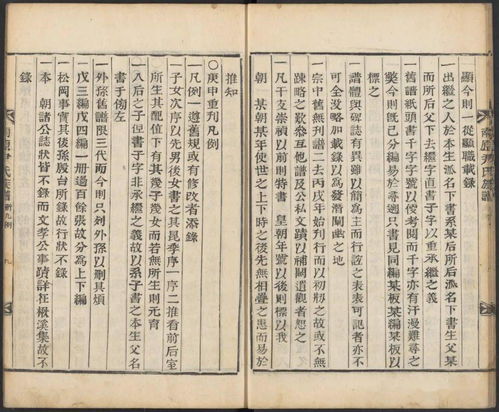 顯今則一從顯職載錄
一出繼之人於本生派名下書系某后所后派名下書生父某
而所后父下去繼字直書子字以重承繼之義
一舊譜紙頭書千字字號以便考閱而千字亦有汗漫難尋之
獘今則旣已分編易於尋遡只書見同編某板某編某板以
標之
一譜體與碑誌有異雖以簡爲主而行誼之表表可記者亦不
可全沒略加載錄以爲發潛闡幽之地
一宗中舊無刊譜二去丙戌年始刊行而以初刱之故或不無
踈略之歎叅互他譜及公私文蹟以補闕遺觀者恕之
一凡干支崇禎以前則特書 皇朝年號以後則標以我
朝 某朝某年使世之上下時之後先無相疊之患而易於
推知
○庚申重刋凡例
一凡例一遵舊規或有修改者添錄
一子女次序以先男後女書之其昆季序一序二推看前后室
所生其配值下有其幾子幾女而若無所生則元育
一入后之子但書子字非承繼之義故以系子書之本生父名
書于傍左
一外孫舊譜限三代而今則只列外孫以刪其煩
一戊三編戊四編一冊過百餘張故分爲上下編
一松岡事實其後孫殷台所錄故行狀不錄
一本 朝諸公誌狀皆不錄而文孝公事蹟詳在槪溪集故不
錄